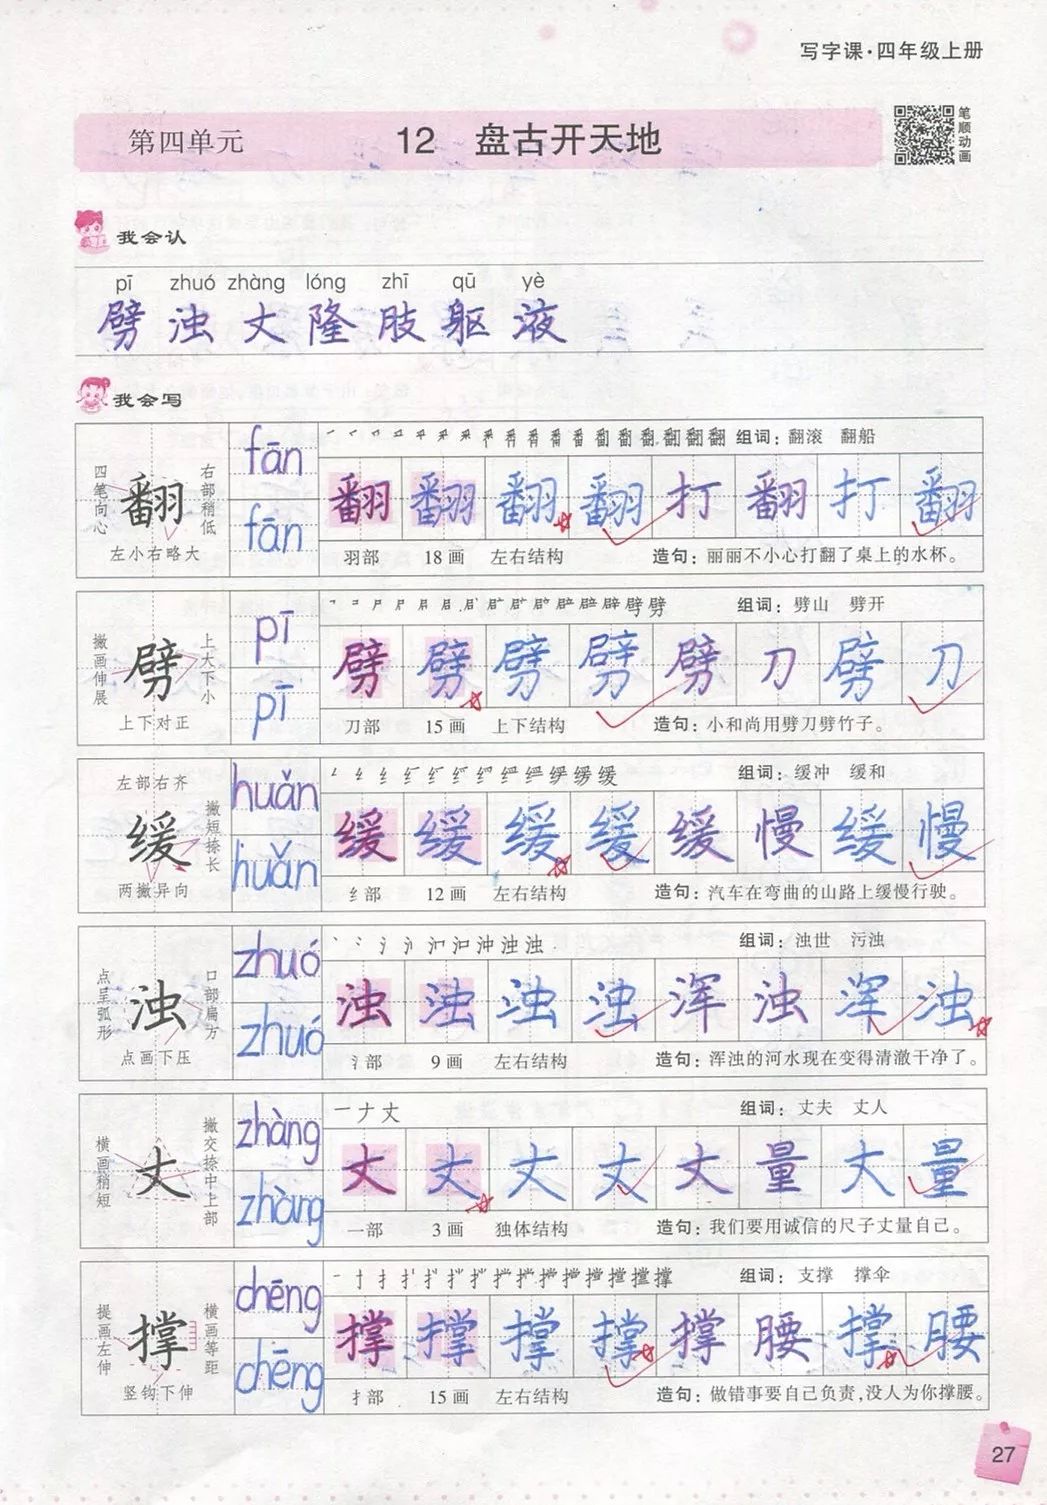 写字课·四年级上册
第四单元 12 盘古开天地
笔顺动画
我会认
pī zhuó zhàng lóng zhī qū yè
劈 浊 丈 隆 肢 躯 液
我会写
四笔向心
翻
右部稍低
左小右略大
fān
fān
组词：翻滚 翻船
翻 翻 翻 翻 打 翻 打 翻
羽部 18画 左右结构 造句：丽丽不小心打翻了桌上的水杯。
撇画伸展
劈
上大下小
上下对正
pī
pī
组词：劈山 劈开
劈 劈 劈 劈 劈 刀 劈 刀
刀部 15画 上下结构 造句：小和尚用劈刀劈竹子。
左部右齐
缓
撇短捺长
两撇异向
huǎn
huǎn
组词：缓冲 缓和
缓 缓 缓 缓 缓 慢 缓 慢
纟部 12画 左右结构 造句：汽车在弯曲的山路上缓慢行驶。
点呈弧形
浊
口部扁方
点画下压
zhuó
zhuó
组词：浊世 污浊
浊 浊 浊 浊 浑 浊 浑 浊
氵部 9画 左右结构 造句：浑浊的河水现在变得清澈干净了。
横画稍短
丈
撇交捺中上部
zhàng
zhàng
一 ナ 丈 组词：丈夫 丈人
丈 丈 丈 丈 丈 量 丈 量
一部 3画 独体结构 造句：我们要用诚信的尺子丈量自己。
提画左伸
撑
横画等距
竖钩下伸
chēng
chēng
组词：支撑 撑伞
撑 撑 撑 撑 撑 腰 撑 腰
扌部 15画 左右结构 造句：做错事要自己负责，没人为你撑腰。
27